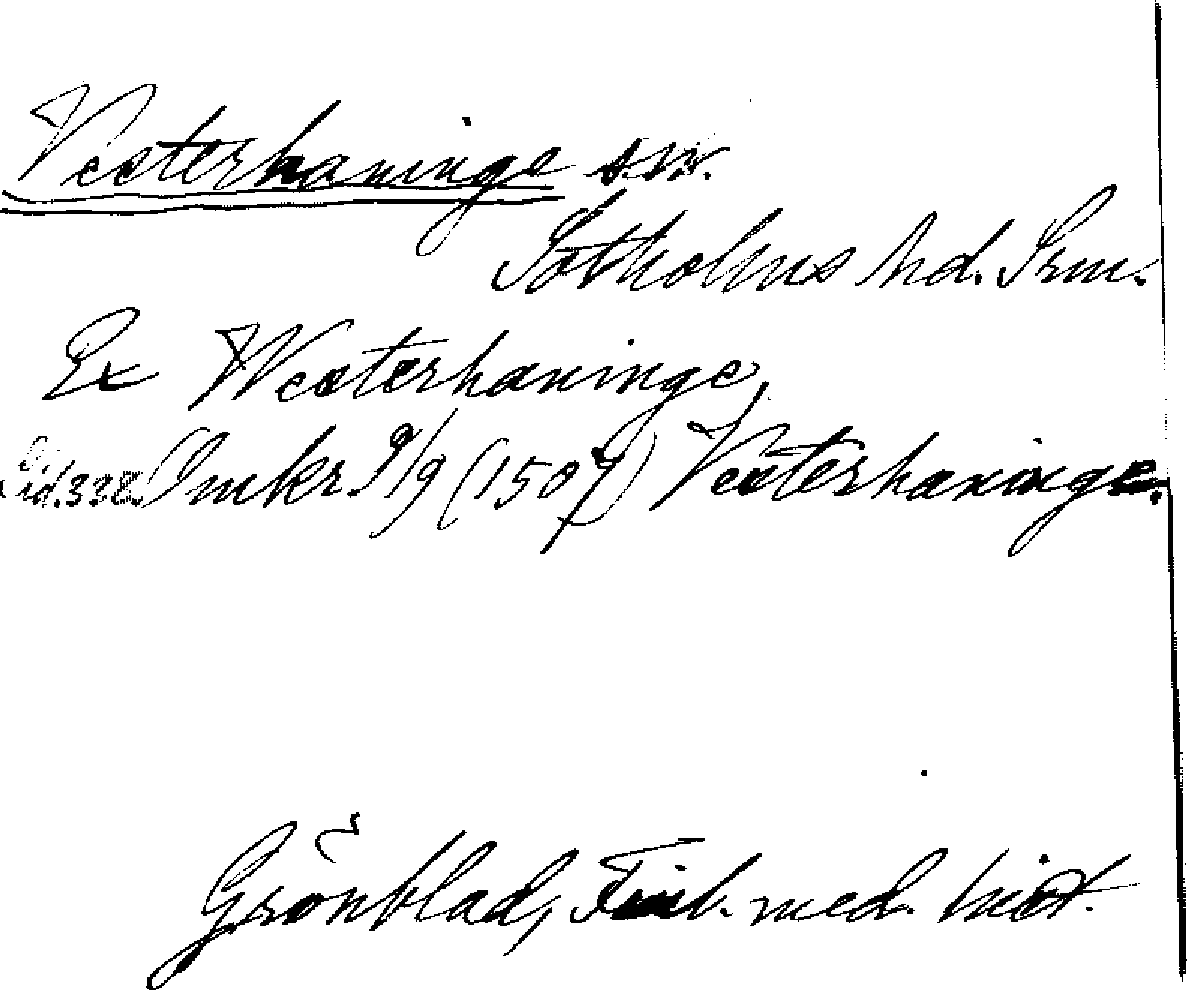 Vesterhaninge sn.
Sotholms hd. Srm.
Ex Westerhaninge,
Sid. 338. Omkr. 9/9 (1507) Vesterhaninge.
Grönblad, Finl. med. hist.